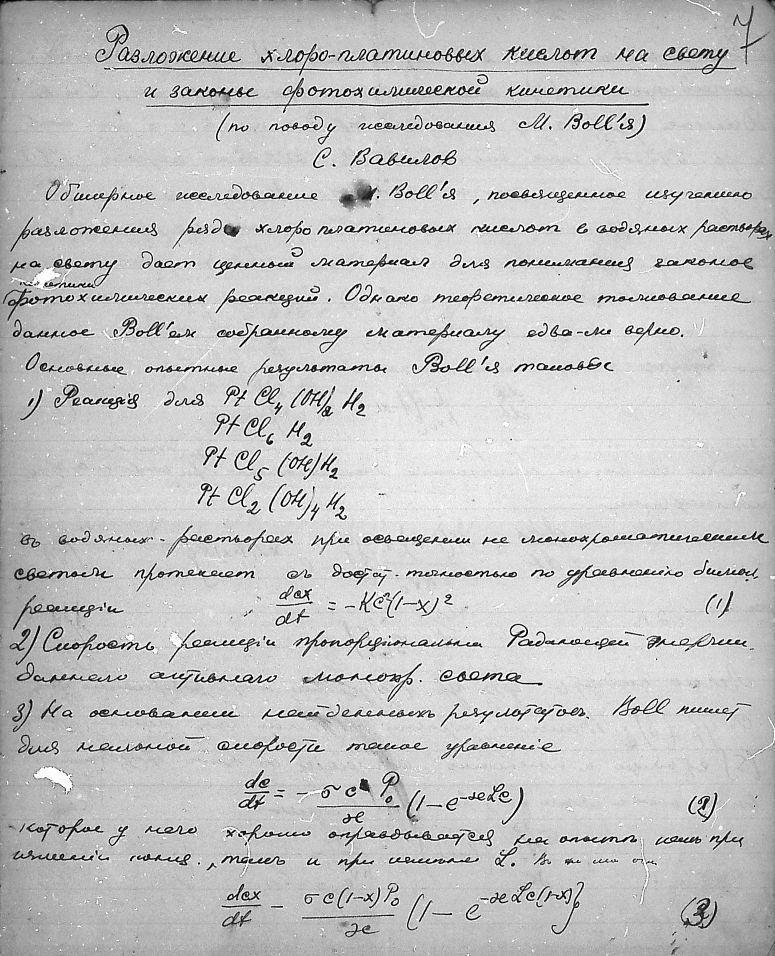 7
Разложение хлоро-платиновых кислот на свету
и законы фотохимической кинетики
(по поводу исследования M. Boll'я)
С. Вавилов
Обширное исследование M. Boll'я, посвященное изучению
разложения ряда хлороплатиновых кислот в водяных растворах
на свету дает ценный материал для понимания законов
кинетики
фотохимических реакций. Однако теоретическое толкование
данное Boll'ем собранному материалу едва-ли верно.
Основные опытные результаты Boll'я таковы:
1) Реакція для Pt Cl4 (OH)2 H2
Pt Cl6 H2
Pt Cl5 (OH) H2
Pt Cl2 (OH)4 H2
въ водяных растворах при освещении не монохроматическим
светом протекает съ достат. точностью по уравненію бимол.
реакціи dcx/dt = -Kc²(1-x)² (1)
2) Скорость реакціи пропорціональна падающей энергии
даннаго активнаго монохр. света
3) На основании найденныхъ результатовъ Boll пишет
для начальной скорости такое уравненіе
dc/dt = - σ c P₀/ϰ (1-e^-ϰLc) (2)
которое у него хорошо оправдывается на опытѣ какъ при
конц., такъ и при L.
dcx/dt - σ c(1-x)P₀/ϰ (1-e^-ϰLc(1-x)) (3)